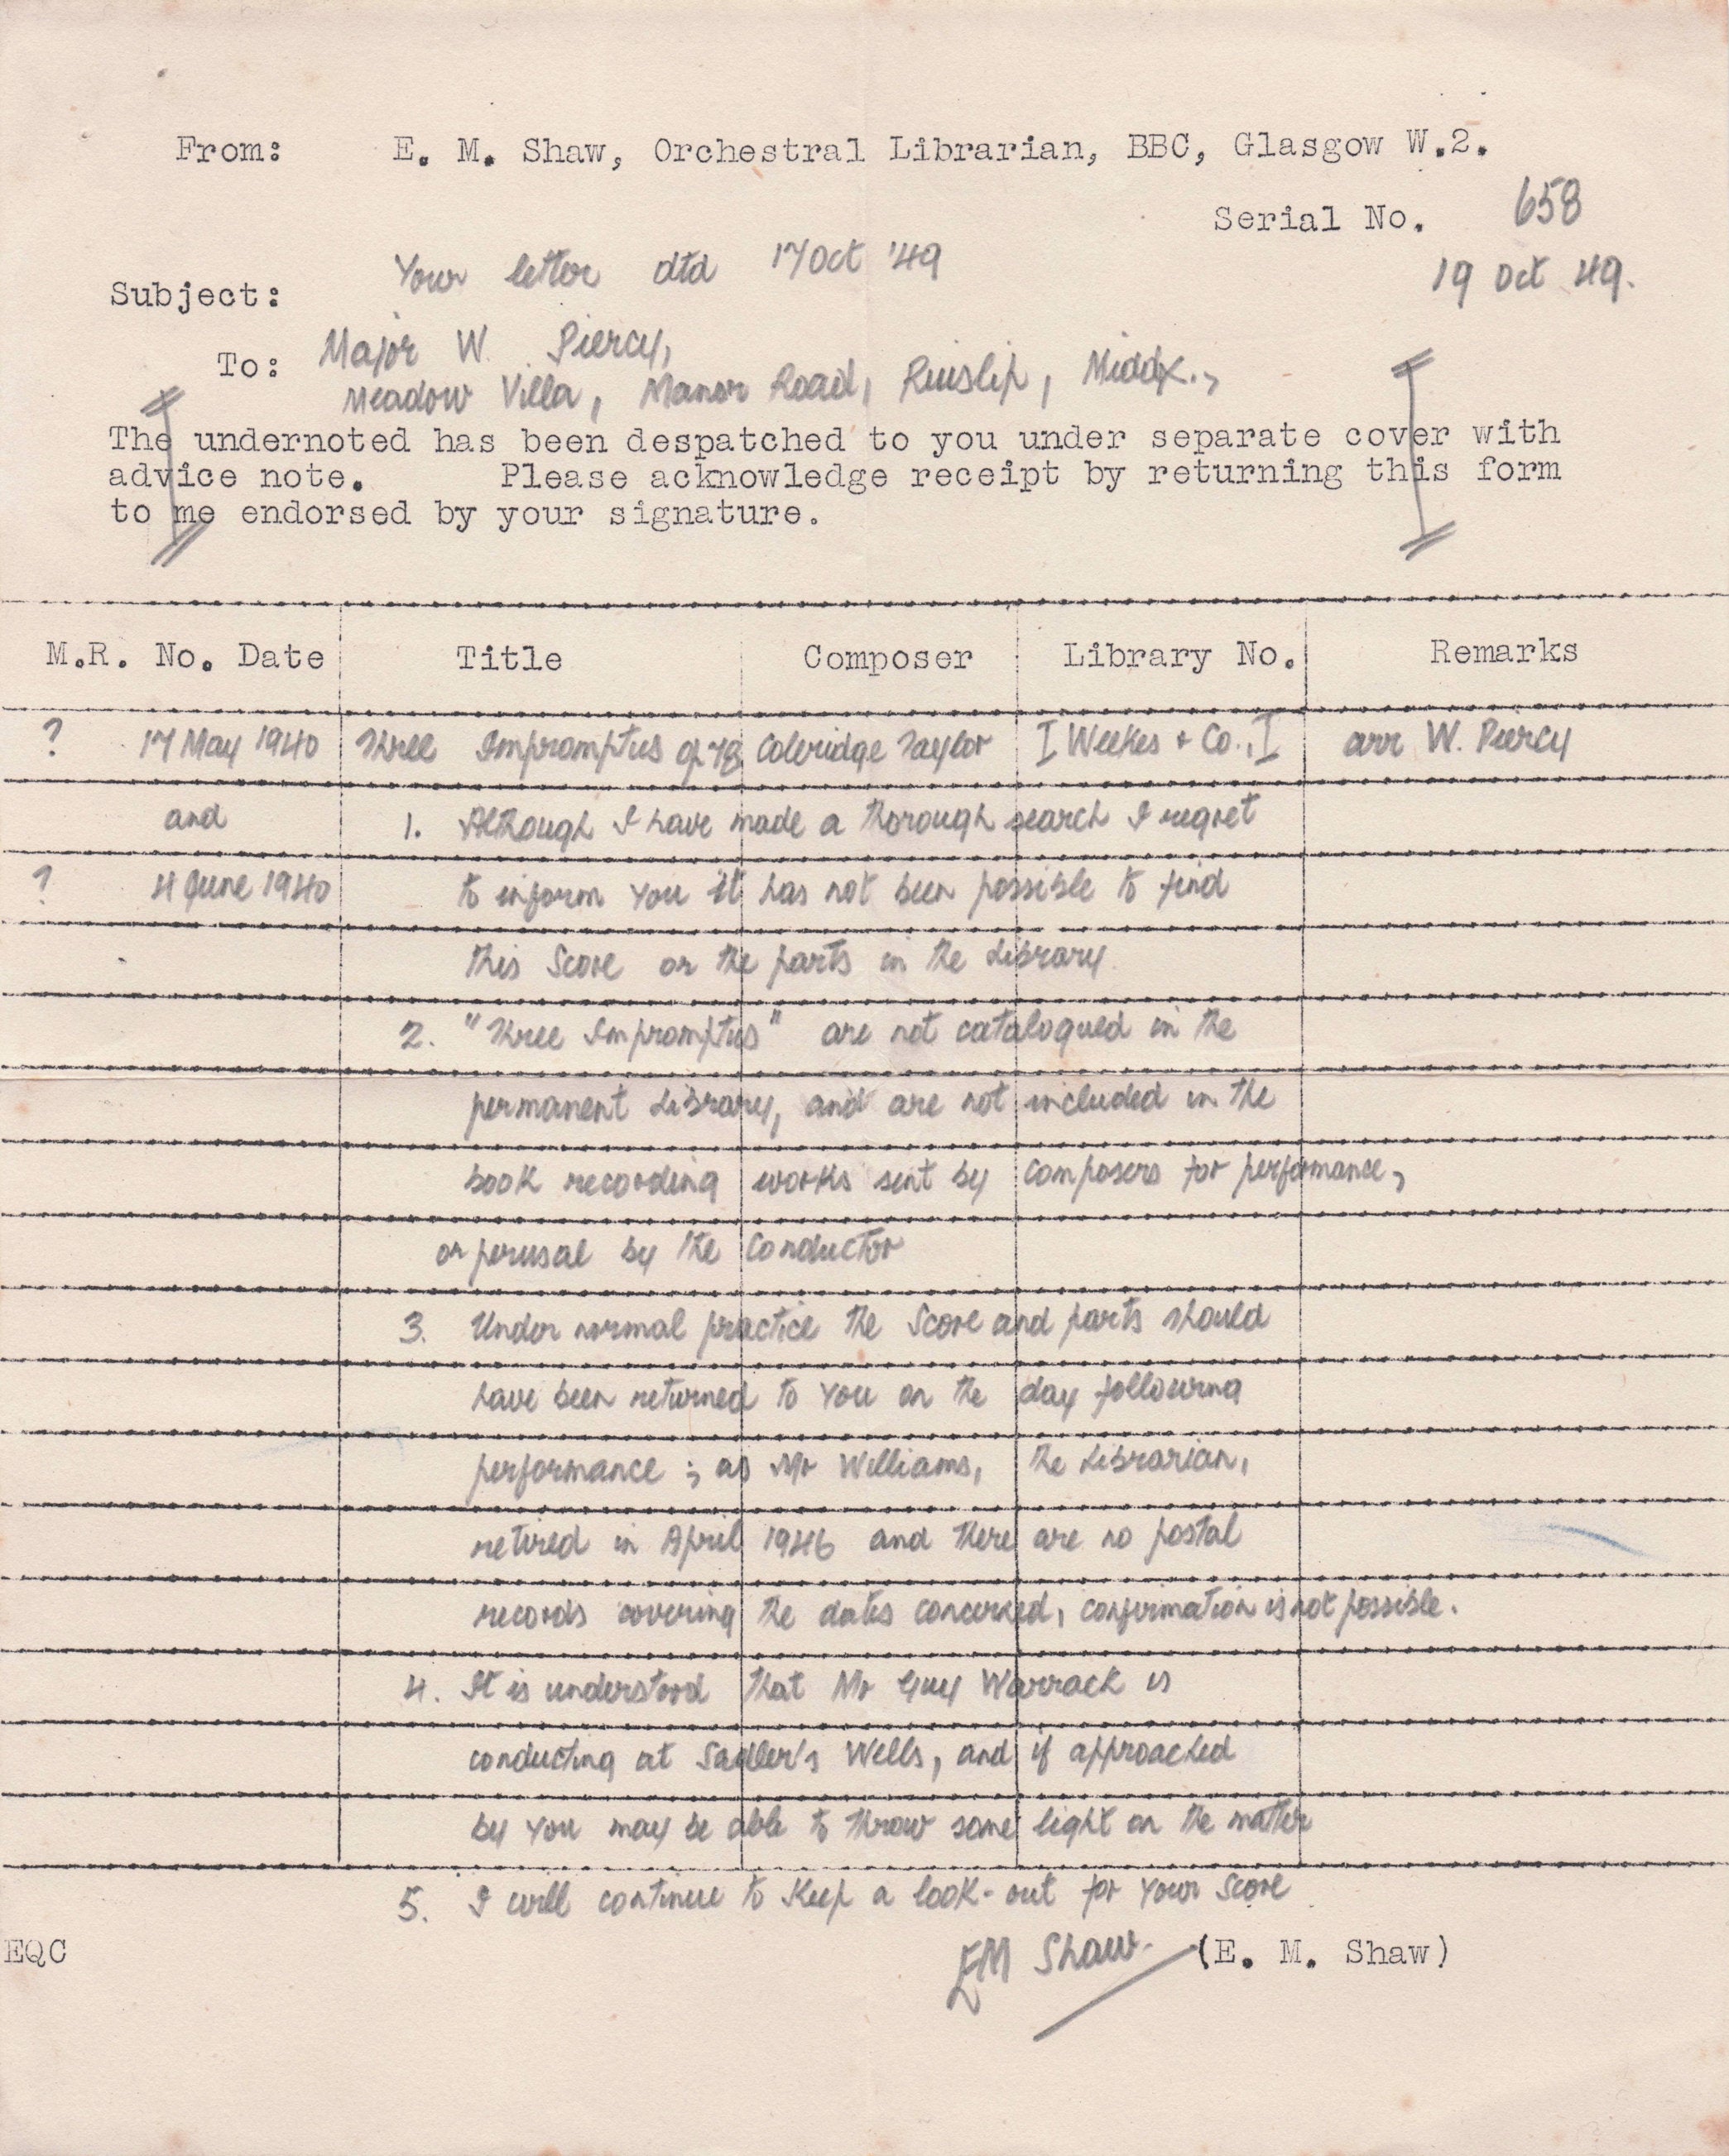 From: E. M. Shaw, Orchestral Librarian, BBC, Glasgow W.2.
Serial No. 658
19 Oct 49.
Subject: Your letter dtd 17 Oct '49
To: Major W. Piercy,
Meadow Villa, Manor Road, Ruislip, Middx.,
The undernoted has been despatched to you under separate cover with
advice note. Please acknowledge receipt by returning this form
to me endorsed by your signature.
M.R. No. Date Title Composer Library No. Remarks
? 17 May 1940 Three Impromptus op 78 Coleridge Taylor I Weekes + Co., I arr W. Piercy
and 1. Although I have made a thorough search I regret
? 4 June 1940 to inform you it has not been possible to find
this Score or the parts in the Library
2. "Three Impromptus" are not catalogued in the
permanent Library, and are not included in the
book recording works sent by composers for performance,
or perusal by the Conductor
3. Under normal practice the Score and parts should
have been returned to you on the day following
performance; as Mr Williams, the Librarian,
retired in April 1946 and there are no postal
records covering the dates concerned, confirmation is not possible.
4. It is understood that Mr Guy Warrack is
conducting at Sadler's Wells, and if approached
by you may be able to throw some light on the matter
5. I will continue to keep a look-out for your Score
EM Shaw. (E. M. Shaw)
EQC